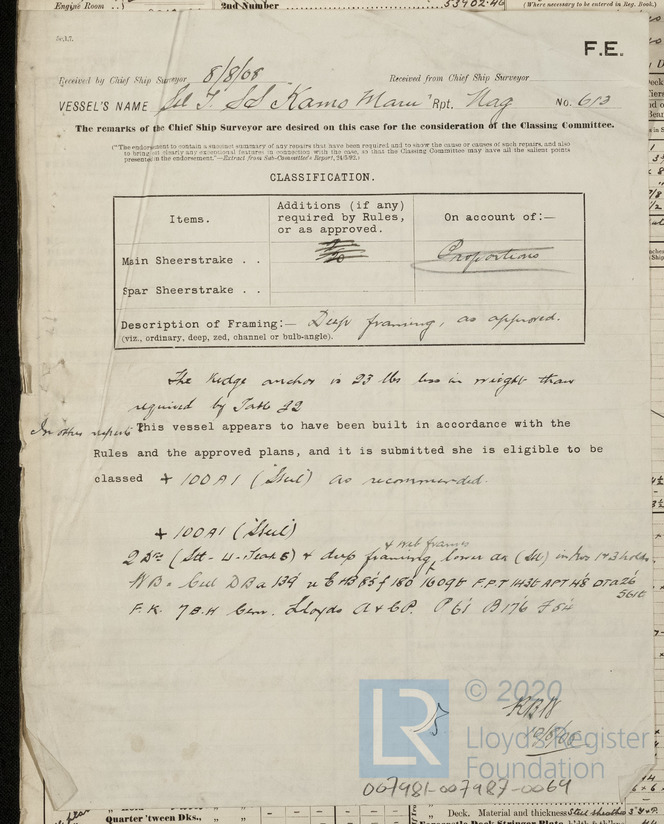 Engine Room
2nd Number 53902.46
(Where necessary to be entered in Reg. Book.)
F.E.
Received by Chief Ship Surveyor 8/8/08 Received from Chief Ship Surveyor
VESSEL'S NAME SS Kamo Maru Rpt. Nag No. 613
The remarks of the Chief Ship Surveyor are desired on this case for the consideration of the Classing Committee.
("The endorsement to contain a succinct summary of any repairs that have been required and to show the cause or causes of such repairs, and also
to bring out clearly any exceptional features in connection with the case, so that the Classing Committee may have all the salient points
presented in the endorsement."—Extract from Sub-Committee's Report, 24/5/02.)
CLASSIFICATION.
Items. Additions (if any) required by Rules, or as approved. On account of:—
Main Sheerstrake . . Proportions
Spar Sheerstrake . .
Description of Framing:— Deep framing, as approved.
(viz., ordinary, deep, zed, channel or bulb-angle).
The Kedge anchor is 23 lbs less in weight than
required by Table 22
In other respects This vessel appears to have been built in accordance with the
Rules and the approved plans, and it is submitted she is eligible to be
classed + 100A1 (Steel) as recommended.
+ 100A1 (Steel)
& web frames
2 Dks (Stl - & deep framing, lower dk (Stl) in holds
W B = Cell D B 139' 1609t F.P.T 143t A.P.T
561t
F.K. 7 B.H Cem. Lloyds A & C.P. P 61 B 176 F 54
KBW
© 2020
Lloyds Register
Foundation
LR
007981-007987-0064
Quarter 'tween Dks., Deck. Material and thickness